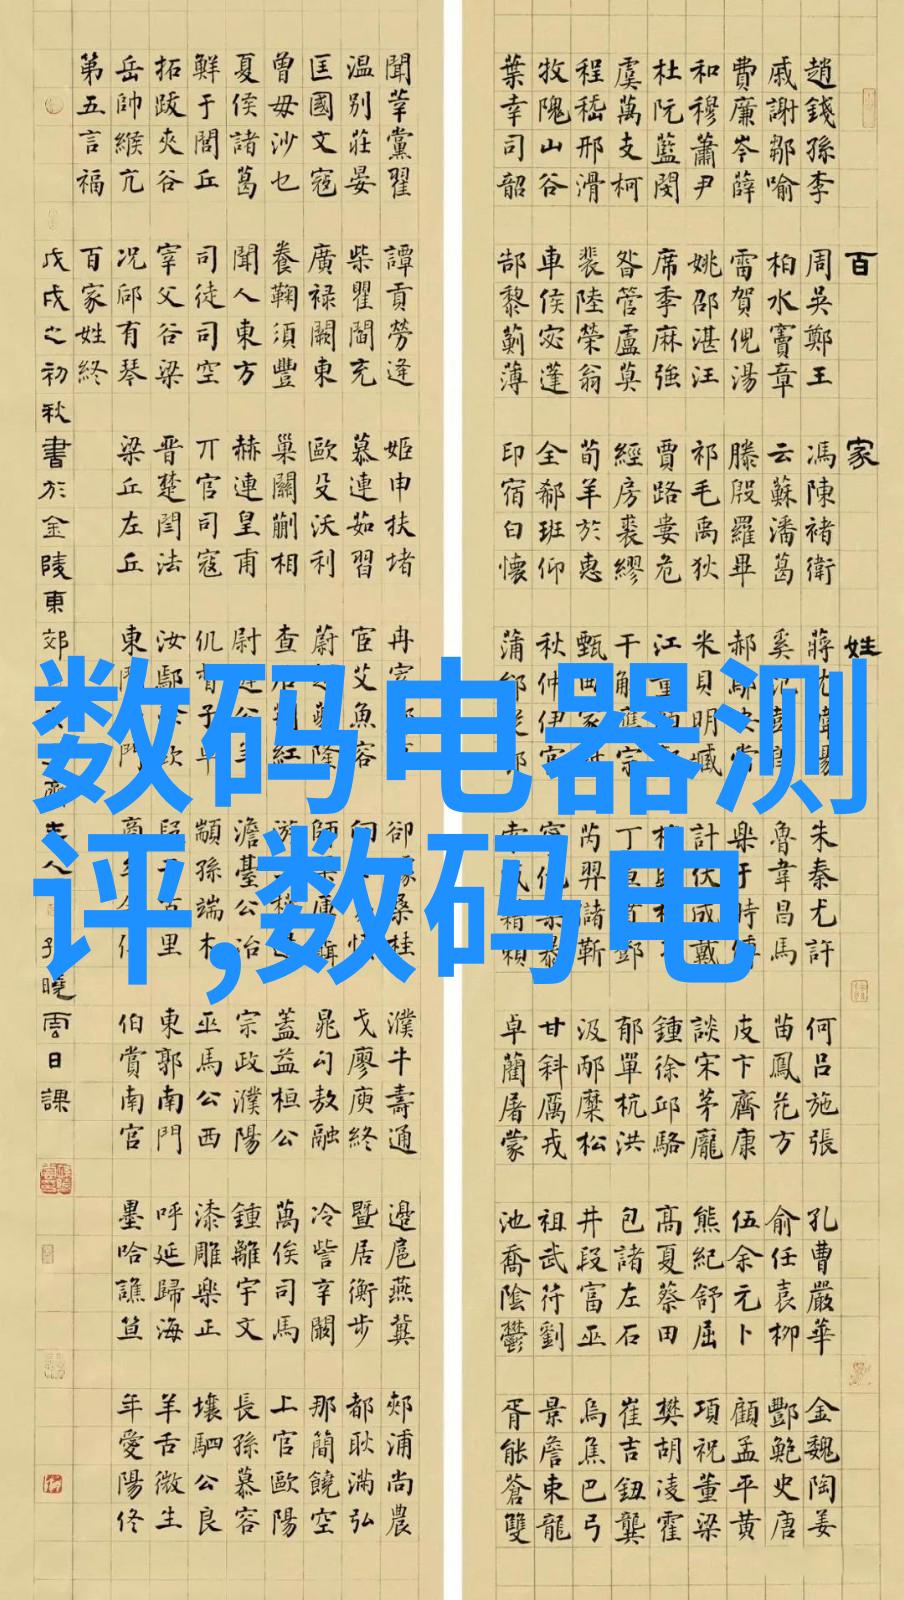 百家姓
趙錢孫李周吳鄭王馮陳褚衛蔣沈韓楊朱秦尤許何呂施張孔曹嚴華金魏陶姜
戚謝鄒喻柏水竇章云蘇潘葛奚范彭魯韋昌馬苗鳳花方俞任袁柳酆鮑史唐
費廉岑薛雷賀倪湯滕殷羅畢郝鄔安常樂于時傅皮卞齊康伍余元卜顧孟平黃
和穆蕭尹姚邵湛汪祁毛禹狄米貝明臧計伏成戴談宋茅龐熊紀舒屈項祝董梁
杜阮藍閔席季麻強賈路婁危江童鍾徐邱駱高夏蔡田樊胡凌霍
虞萬支柯昝管盧莫經房裘繆干解應宗丁宣鄧郁單杭洪包諸左石崔吉鈕龔
程嵇邢滑裴陸榮翁荀羊於惠甄家芮羿儲靳汲邴糜松井段富巫烏焦巴弓
牧隗山谷車侯宓蓬全郗班仰秋仲伊宮甘斜厲戎祖武符劉景詹束龍
葉幸司韶郜黎薊薄印宿白懷蒲索咸籍賴卓藺屠蒙池喬陰鬱胥能蒼雙
聞莘黨翟譚貢勞逄姬申扶堵冉宰郤璩桑桂濮牛壽通邊扈燕冀郟浦尚農
温別莊晏柴瞿閻充慕連茹習宦艾魚容戈廖庾終暨居衡步都耿滿弘
匡國文寇廣祿闕東歐殳沃利蔚越隆師晁勾敖融冷訾辛闞那簡饒空
曾毋沙乜養鞠須豐巢關蒯相查后紅游蓋益桓公萬俟司馬上官歐陽
夏侯諸葛聞人東方赫連皇甫尉遲公羊澹臺公冶宗政濮陽鍾離宇文長孫慕容
鮮于閭丘司徒司空亓官司寇仉督子車顓孫端木巫馬公西漆雕樂正壤駟公良
拓跋夾谷宰父谷梁晉楚閆法汝鄢欽段百里東郭南門呼延歸海羊舌微生
岳帥緱亢況郈有琴梁丘左丘東門門商伯賞南宮墨哈譙笪年愛陽佟
第五言福百家姓終
戊戌之初秋書於金陵東郊齋主人孫曉雲日課
数码电器测
评,数码电